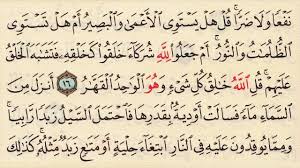 نَفْعًا وَلَا ضَرًّا ۚ قُلْ هَلْ يَسْتَوِى الْأَعْمَىٰ وَالْبَصِيرُ أَمْ هَلْ تَسْتَوِى
الظُّلُمَاتُ وَالنُّورُ ۗ أَمْ جَعَلُوا لِلَّهِ شُرَكَاءَ خَلَقُوا كَخَلْقِهِ فَتَشَابَهَ الْخَلْقُ
عَلَيْهِمْ ۚ قُلِ اللَّهُ خَالِقُ كُلِّ شَىْءٍ وَهُوَ الْوَاحِدُ الْقَهَّارُ ١٦ أَنزَلَ مِنَ
السَّمَاءِ مَاءً فَسَالَتْ أَوْدِيَةٌ بِقَدَرِهَا فَاحْتَمَلَ السَّيْلُ زَبَدًا رَّابِيًا ۚ
وَمِمَّا يُوقِدُونَ عَلَيْهِ فِى النَّارِ ابْتِغَاءَ حِلْيَةٍ أَوْ مَتَاعٍ زَبَدٌ مِّثْلُهُ ۚ كَذَٰلِكَ